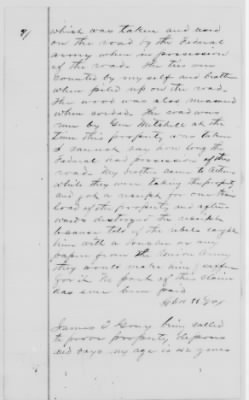 which was taken and used
on the road by the Federal
army when in possession
of the road. The ties were
counted by my self and brother
when piled up on the road
The wood was also measured
when corded. The road was
run by Gen Mitchell at the
time this property was taken
I cannot say how long the
Federal had possession of the
road. My brother came to Athens
while they were taking the property
and got a receipt for one
load of the property and after
wards destroyed the receipt
because told if the rebels caught
him with a voucher or any
paper from the Union Army
they would make him suffer
for it. No part of this claim
has ever been paid

James T Gray being called
to prove property deposes
and says my age is